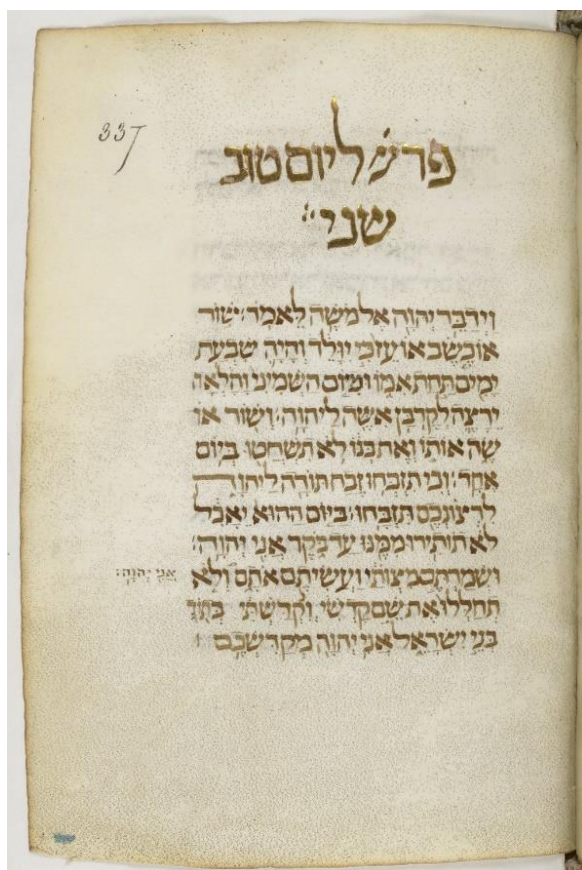 337
פרש׳ ליום טוב
שני :
וַיְדַבֵּר יְהוָה אֶל מֹשֶׁה לֵּאמֹר׃ שׁוֹר
אוֹ כֶשֶׂב אוֹ עֵז כִּי יִוָּלֵד וְהָיָה שִׁבְעַת
יָמִים תַּחַת אִמּוֹ וּמִיּוֹם הַשְּׁמִינִי וָהָלְאָה
יֵרָצֶה לְקָרְבַּן אִשֶּׁה לַיהוָה׃ וְשׁוֹר אוֹ
שֶׂה אוֹתוֹ וְאֶת בְּנוֹ לֹא תִשְׁחֲטוּ בְּיוֹם
אֶחָד׃ וְכִי תִזְבְּחוּ זֶבַח תּוֹדָה לַיהוָה
לִרְצוֹנְכֶם תִּזְבָּחוּ׃ בַּיּוֹם הַהוּא יֵאָכֵל
לֹא תוֹתִירוּ מִמֶּנּוּ עַד בֹּקֶר אֲנִי יְהוָה׃
וּשְׁמַרְתֶּם מִצְוֹתַי וַעֲשִׂיתֶם אֹתָם וְלֹא
אֲנִי יְהוָה׃
תְחַלְּלוּ אֶת שֵׁם קָדְשִׁי וְנִקְדַּשְׁתִּי בְּתוֹךְ
בְּנֵי יִשְׂרָאֵל אֲנִי יְהוָה מְקַדִּשְׁכֶם